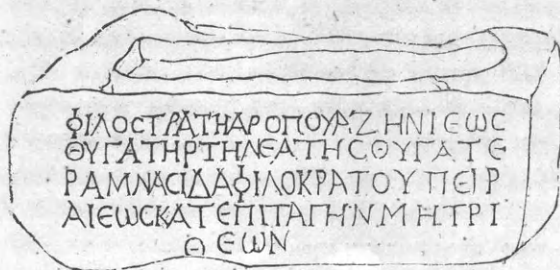 ΦΙΛΟCΤΡΑΤΗΑΡΟΠΟΥΑΖΗΝΙΕωC
ΘΥΓΑΤΗΡΤΗΛΕΑΤΗCΘΥΓΑΤΕ
ΡΑΜΝΑCΙΔΑΦΙΛΟΚΡΑΤΟΥΠΕΙΡ
ΑΙΕωCΚΑΤΕΠΙΤΑΓΗΝΜΗΤΡΙ
ΘΕωΝ